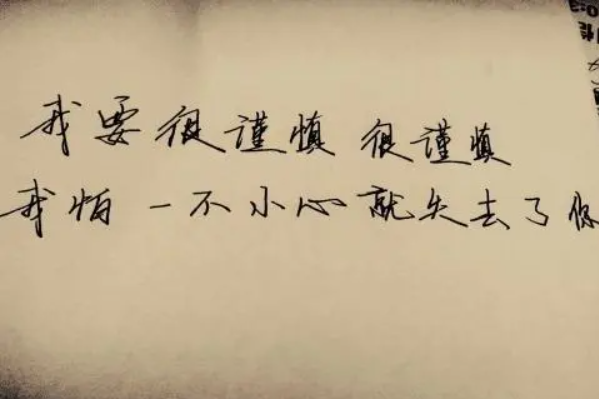 我要很谨慎 很谨慎
我怕 一不小心就失去了你